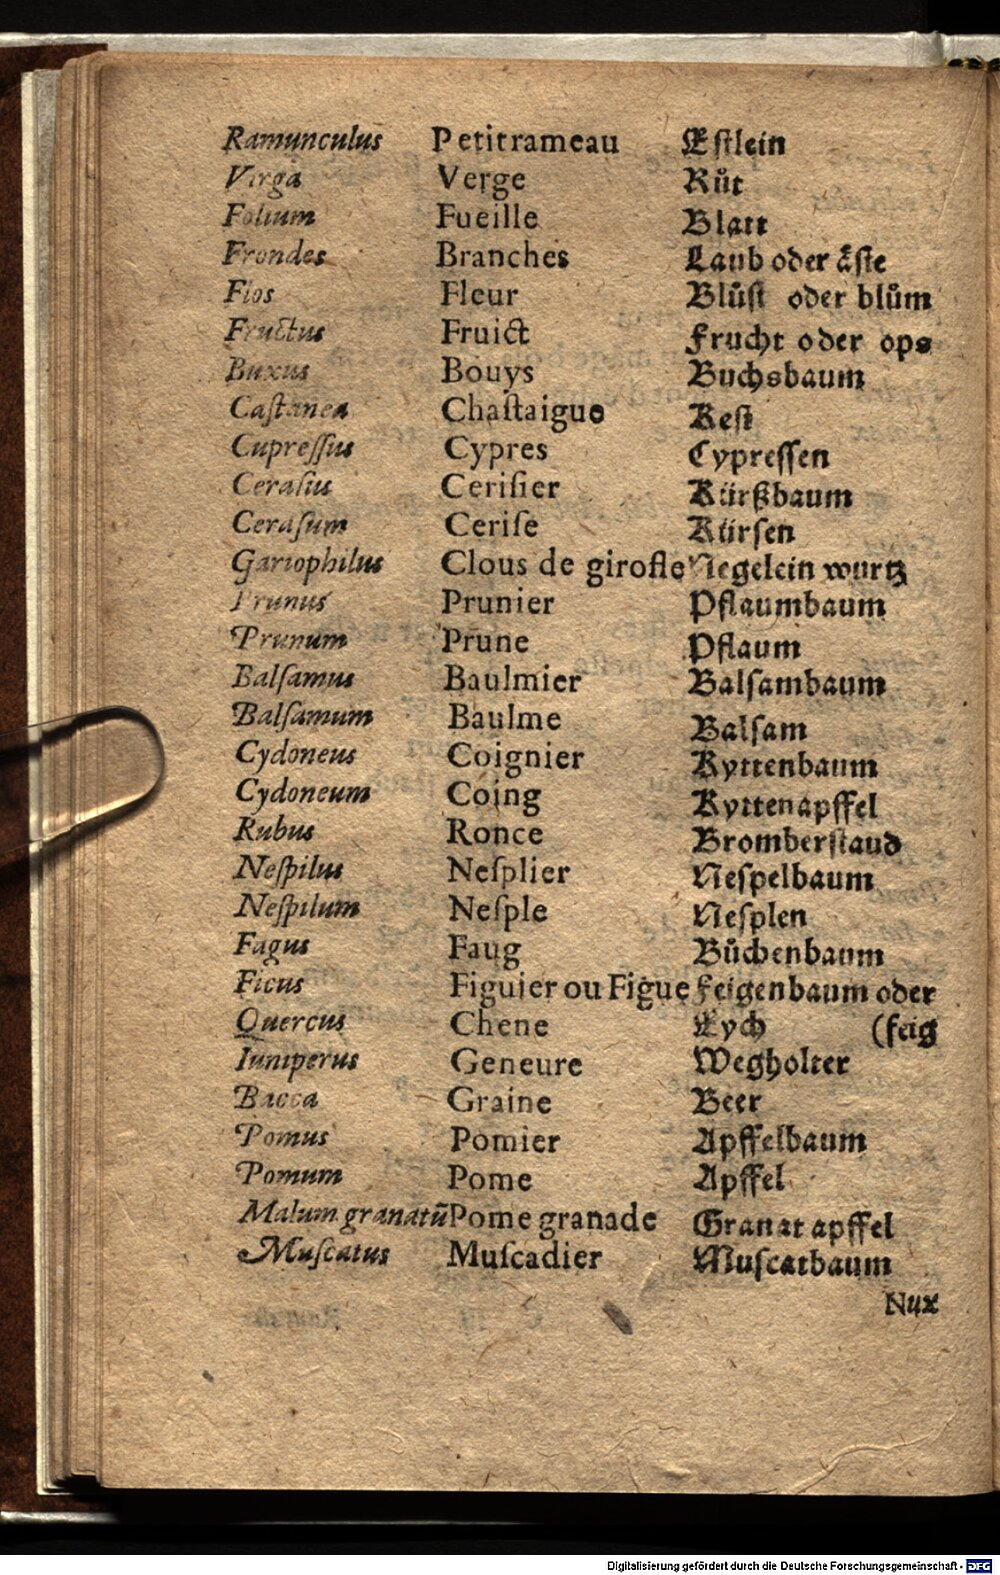 Ramunculus Petit rameau Estlein
Virga Verge Růt
Folium Fueille Blatt
Frondes Branches Laub oder äste
Flos Fleur Blůst oder blům
Fructus Fruict Frucht oder ops
Buxus Bouys Buchsbaum
Castanea Chaſtaigue Kest
Cupreſſus Cypres Cypreſſen
Ceraſus Ceriſier Kürßbaum
Ceraſum Ceriſe Kürſen
Gariophilus Clous de girofle Negelein wurtz
Prunus Prunier Pflaumbaum
Prunum Prune Pflaum
Balſamus Baulmier Balſambaum
Balſamum Baulme Balſam
Cydoneus Coignier Kyttenbaum
Cydoneum Coing Kyttenapffel
Rubus Ronce Bromberſtaud
Neſpilus Neſplier Neſpelbaum
Neſpilum Neſple Neſplen
Fagus Faug Bůchenbaum
Ficus Figuier ou Figue Feigenbaum oder
Quercus Chene Eych (feig
Iuniperus Geneure Wegholter
Bacca Graine Beer
Pomus Pomier Apffelbaum
Pomum Pome Apffel
Malum granatū Pome granade Granat apffel
Muſcatus Muſcadier Muſcatbaum
Nux
Digitalisierung gefördert durch die Deutsche Forschungsgemeinschaft - DFG